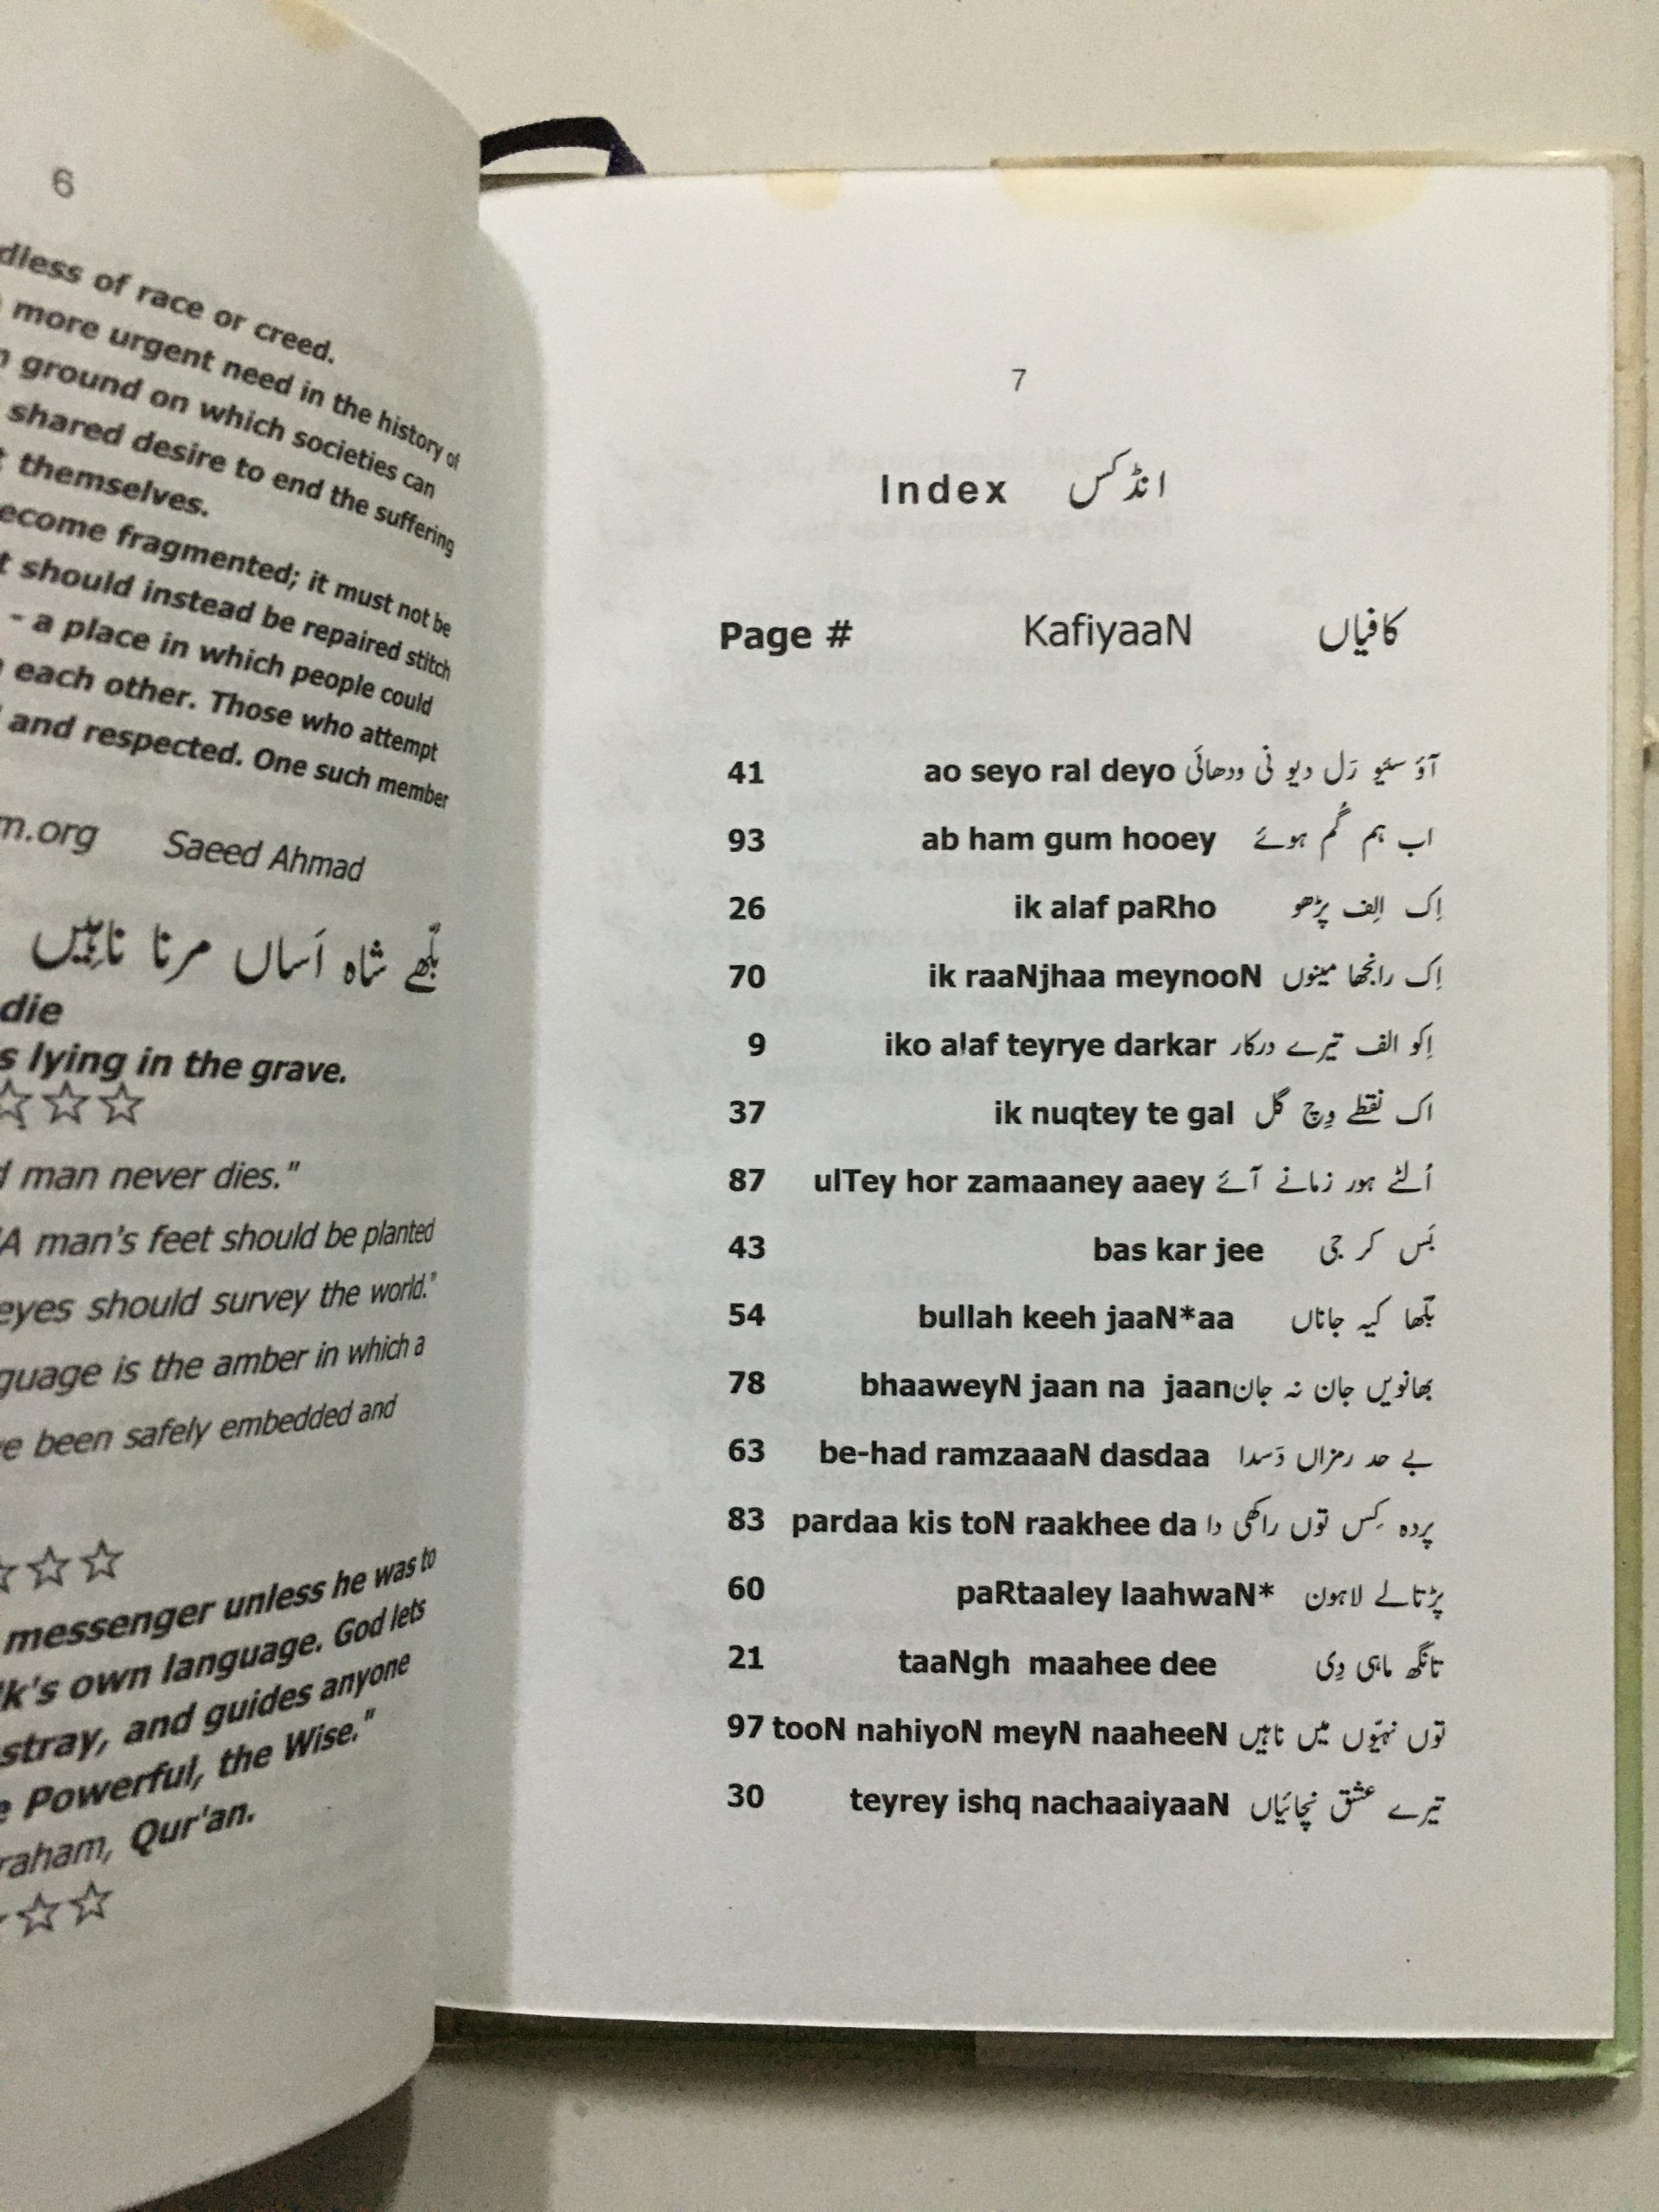 6
dless of race or creed.
more urgent need in the history of
ground on which societies can
shared desire to end the suffering
themselves.
ecome fragmented; it must not be
t should instead be repaired stitch
- a place in which people could
each other. Those who attempt
and respected. One such member
m.org Saeed Ahmad
بُلّھے شاہ اَساں مرنا ناہِیں
die
s lying in the grave.
☆☆☆
d man never dies."
"A man's feet should be planted
eyes should survey the world."
guage is the amber in which a
ve been safely embedded and
☆☆☆
messenger unless he was to
lk's own language. God lets
stray, and guides anyone
e Powerful, the Wise."
raham, Qur'an.
☆☆
7
Index انڈکس
Page # KafiyaaN کافیاں
41 ao seyo ral deyo آؤ سئیو رَل دیو نی ودھائی
93 ab ham gum hooey اب ہم گُم ہوئے
26 ik alaf paRho اِک الِف پڑھو
70 ik raaNjhaa meynooN اِک رانجھا مینوں
9 iko alaf teyrye darkar اِکو الف تیرے درکار
37 ik nuqtey te gal اک نقطے وِچ گل
87 ulTey hor zamaaney aaey اُلٹے ہور زمانے آئے
43 bas kar jee بَس کر جی
54 bullah keeh jaaN*aa بُلّھا کیہ جاناں
78 bhaaweyN jaan na jaan بھانویں جان نہ جان
63 be-had ramzaaaN dasdaa بے حد رمزاں دَسدا
83 pardaa kis toN raakhee da پردہ کِس توں راکھی دا
60 paRtaaley laahwaN* پڑتالے لاہون
21 taaNgh maahee dee تانگھ ماہی دِی
97 tooN nahiyoN meyN naaheeN توں نہیّوں میں ناہیں
30 teyrey ishq nachaaiyaaN تیرے عشق نچائیاں